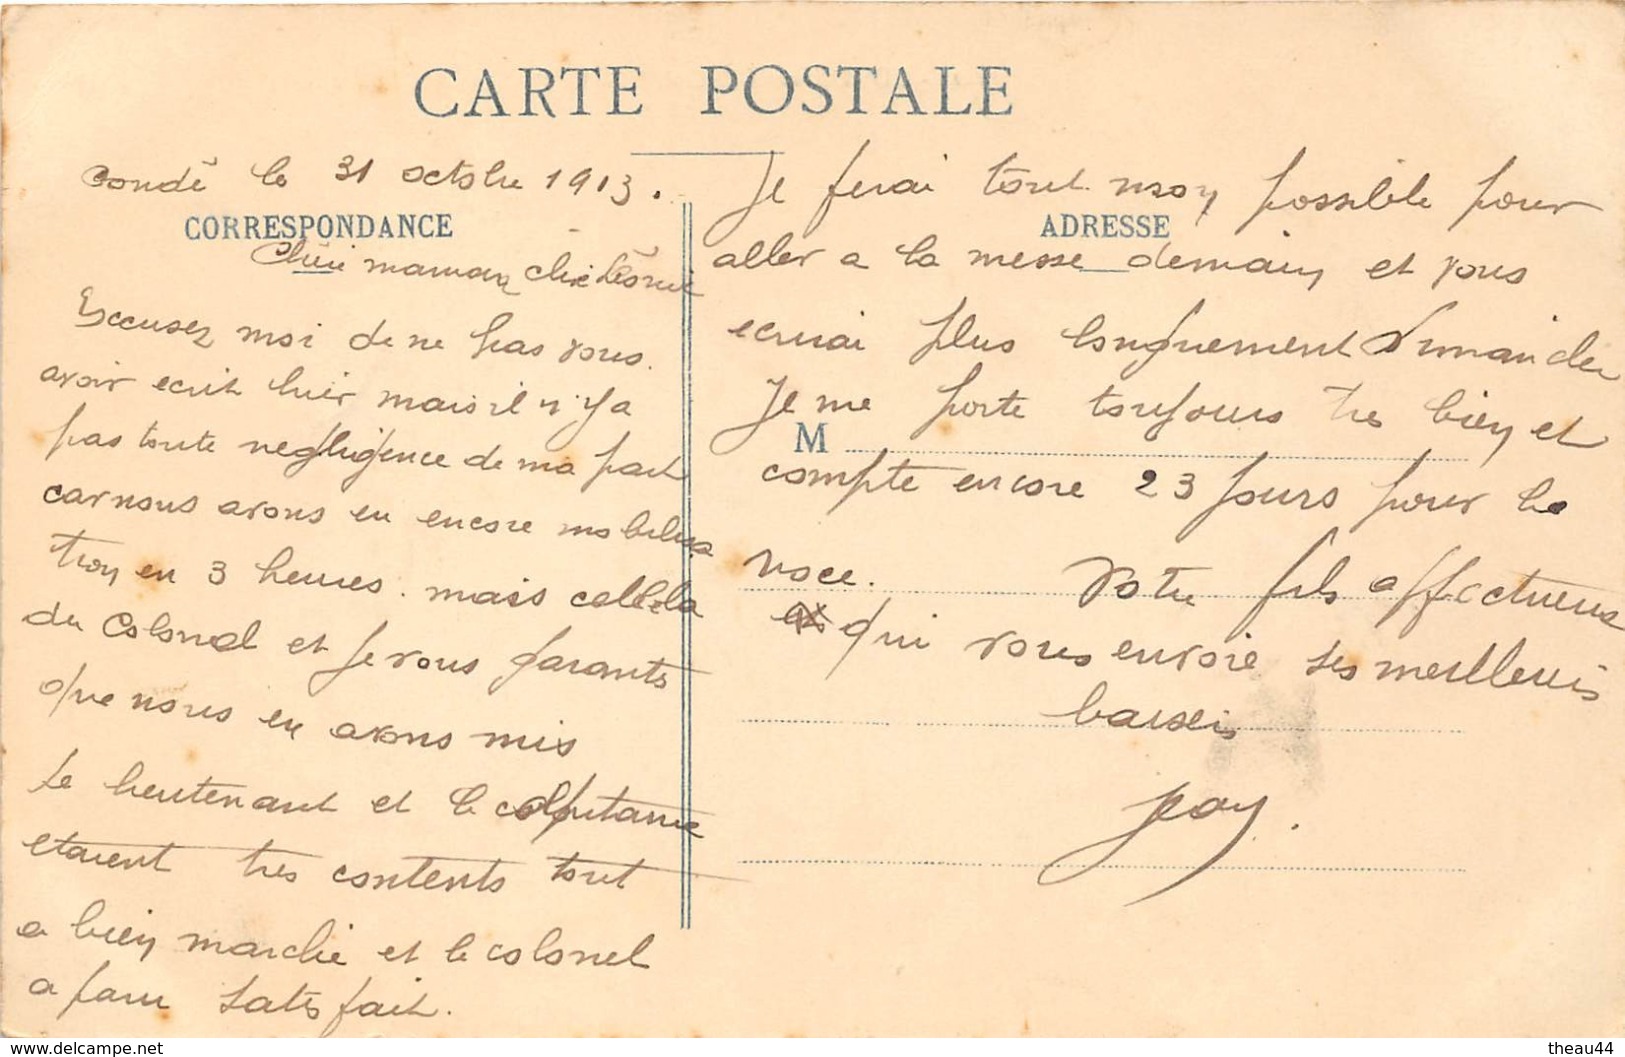 CARTE POSTALE
Condé le 31 octobre 1913.
CORRESPONDANCE
Chère maman chère
Excusez moi de ne pas vous
avoir ecrit hier mais il n'y a
pas toute negligence de ma part
car nous avons eu encore mobilisa
tion en 3 heures. mais celle la
du Colonel et je vous garantis
que nous en avons mis
Le lieutenant et le capitaine
etaient tres contents tout
a bien marché et le colonel
a paru satisfait.
Je ferai tout mon possible pour
ADRESSE
aller a la messe demain et vous
ecrirai plus longuement Dimanche
Je me porte toujours tres bien et
M
compte encore 23 jours pour la
noce. Votre fils affectueux
qui vous envoie ses meilleurs
baisers
www.delcampe.net
theau44